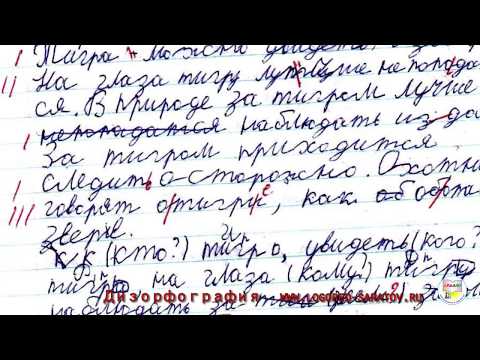 Тигра можно увидеть
На глаза тигру лутьчуше не попода
ся. В природе за тигром лучше
непопадатся наблюдать из да
За тигром приходится
следить о сторожно. Охотни
говорят о тигре, как об
зверв.
К К (кто?) тигр, увидеть (кого?
тигр на глаза (кому?) тигр
наблюдать за
Дизорфография www.logoped-saratov.ru